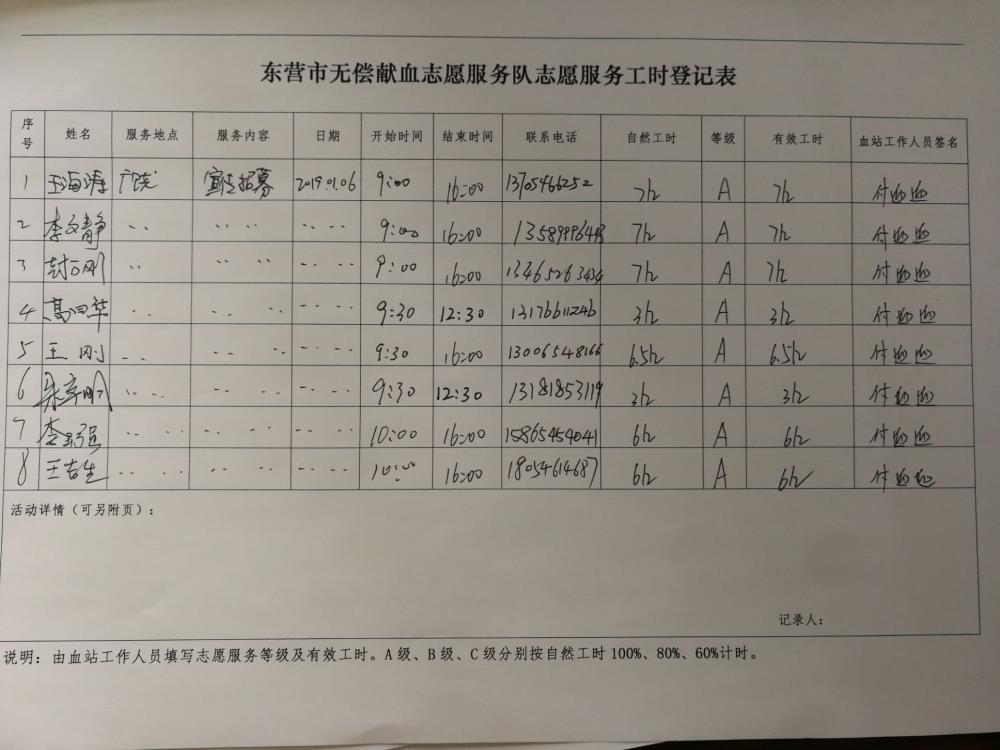 东营市无偿献血志愿服务队志愿服务工时登记表
序号 姓名 服务地点 服务内容 日期 开始时间 结束时间 联系电话 自然工时 等级 有效工时 血站工作人员签名
1 王海涛 广饶 宣传招募 2019.01.06 9:00 16:00 13705466252 7h A 7h
2 李文静 ‥ ‥ ‥ ‥ ‥ 9:00 16:00 7h A 7h
3 ‥ ‥ ‥ ‥ ‥ 9:00 16:00 13465263434 7h A 7h
4 ‥ ‥ ‥ ‥ ‥ 9:30 12:30 13176611246 3h A 3h
5 王刚 ‥ ‥ ‥ ‥ ‥ 9:30 16:00 13006548166 6.5h A 6.5h
6 ‥ ‥ ‥ ‥ ‥ 9:30 12:30 13181853119 3h A 3h
7 ‥ ‥ ‥ ‥ ‥ 10:00 16:00 15865454041 6h A 6h
8 王吉生 ‥ ‥ ‥ ‥ ‥ 10:00 16:00 18054614687 6h A 6h
活动详情（可另附页）：
记录人：
说明：由血站工作人员填写志愿服务等级及有效工时。A级、B级、C级分别按自然工时100%、80%、60%计时。